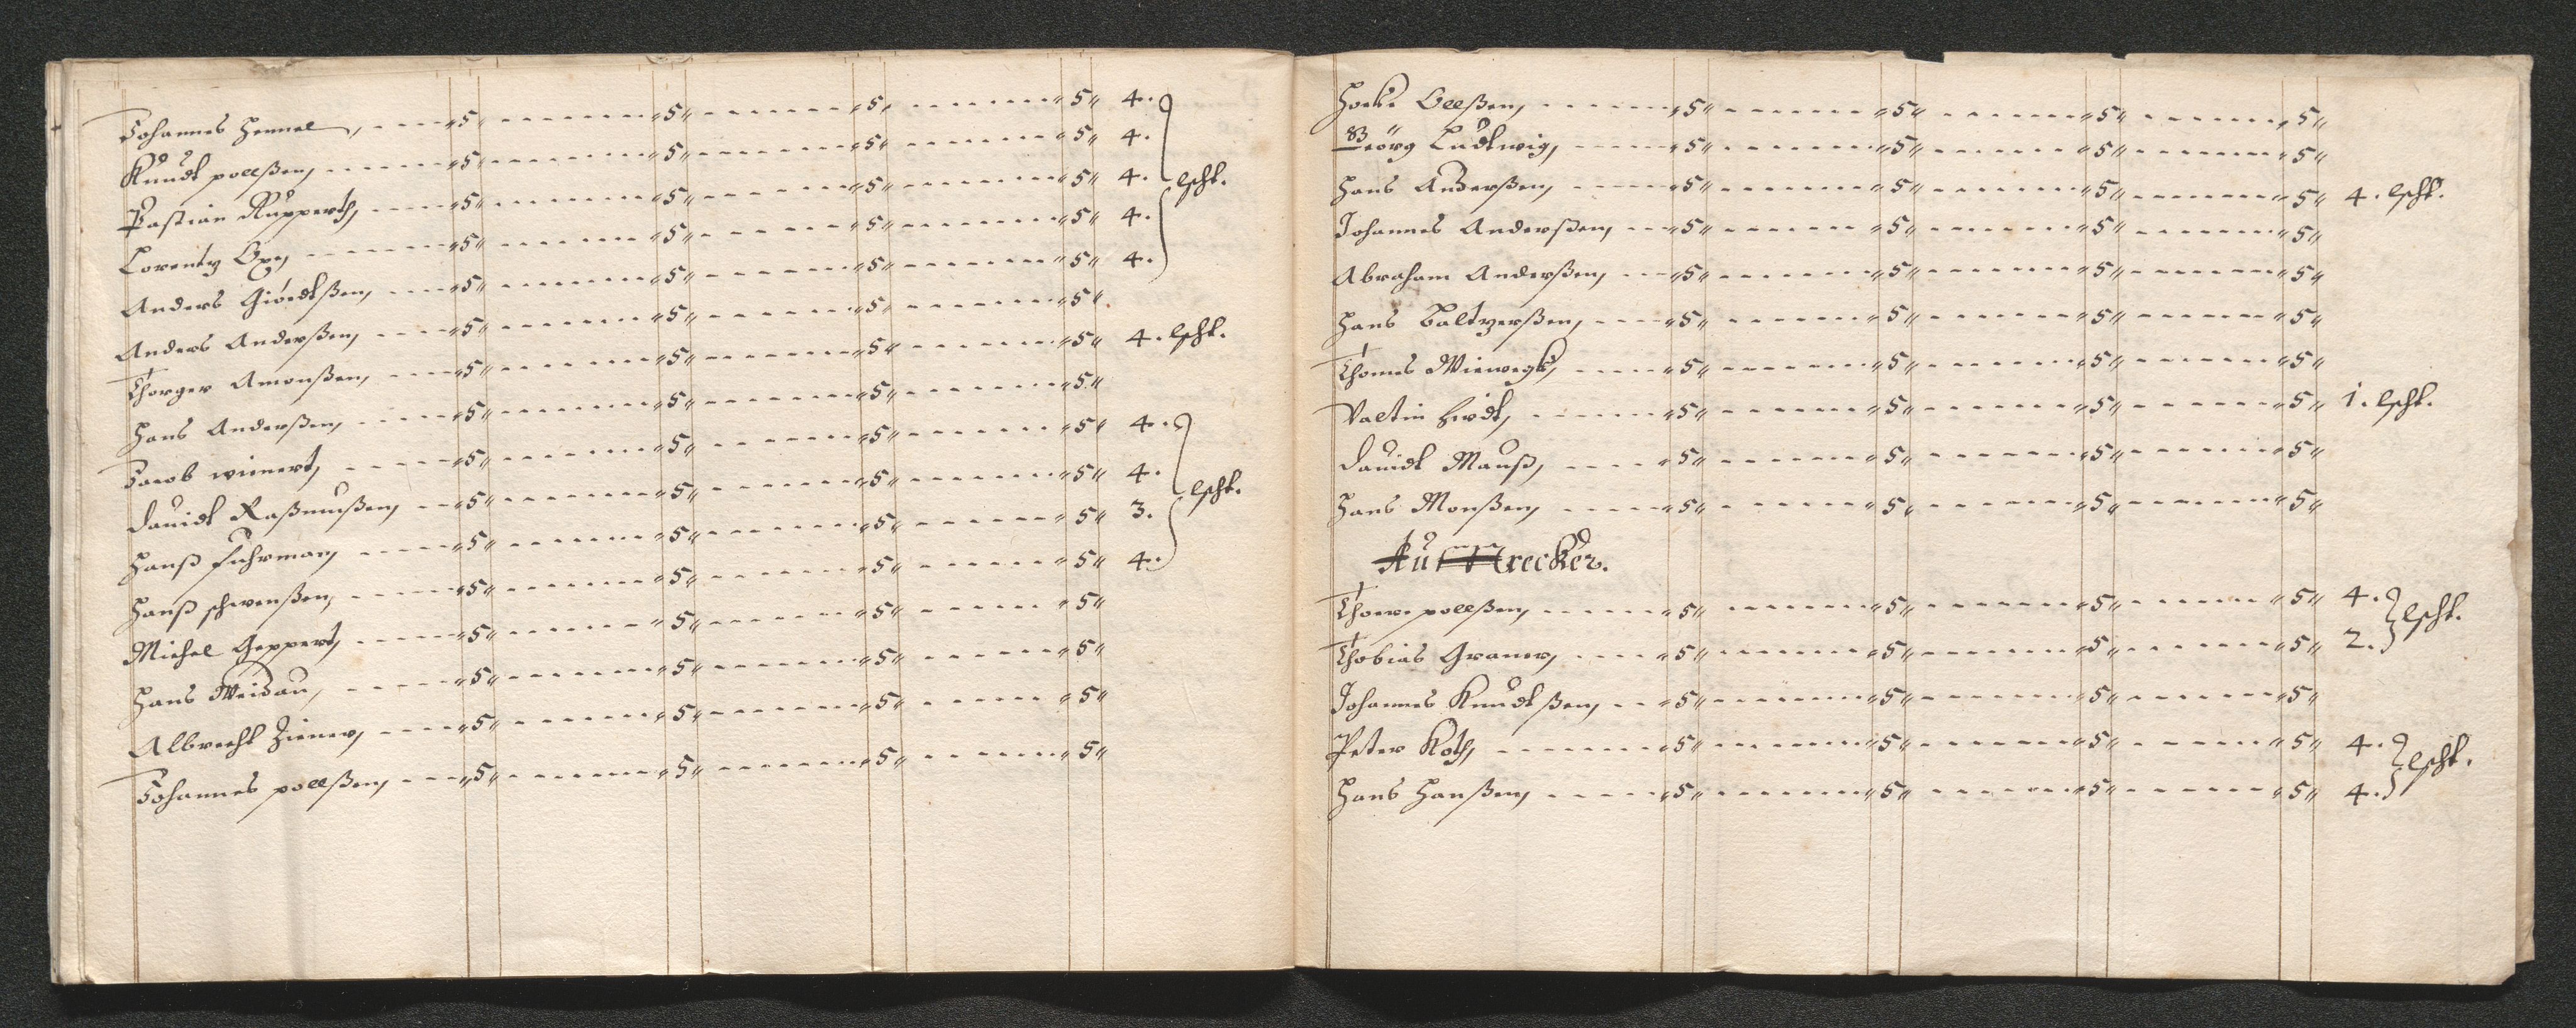 Johannes Hemmel, - - - - „5„ - - - - „5„ - - - - „5„ - - - - „5„ 4.
Knudt pollßen, - - - - „5„ - - - - „5„ - - - - „5„ - - - - „5„ 4.
Bastian Rupperth, - - - - „5„ - - - - „5„ - - - - „5„ - - - - „5„ 4. lscht.
Lorentz Oxe, - - - - „5„ - - - - „5„ - - - - „5„ - - - - „5„ 4.
Anders Giördtßen, - - - - „5„ - - - - „5„ - - - - „5„ - - - - „5„ 4.
Anders Anderßen, - - - - „5„ - - - - „5„ - - - - „5„ - - - - „5„
Thorger Amonßen, - - - - „5„ - - - - „5„ - - - - „5„ - - - - „5„ 4. lscht.
Hans Anderßen, - - - - „5„ - - - - „5„ - - - - „5„ - - - - „5„
Jacob wienert, - - - - „5„ - - - - „5„ - - - - „5„ - - - - „5„ 4.
Dauidt Raßmußen, - - - - „5„ - - - - „5„ - - - - „5„ - - - - „5„ 4. lscht.
Hanß fuhrman, - - - - „5„ - - - - „5„ - - - - „5„ - - - - „5„ 3.
Hanß schwenßen, - - - - „5„ - - - - „5„ - - - - „5„ - - - - „5„ 4.
Michel Geppert, - - - - „5„ - - - - „5„ - - - - „5„ - - - - „5„
Hans Weidau, - - - - „5„ - - - - „5„ - - - - „5„ - - - - „5„
Albrecht Ziener, - - - - „5„ - - - - „5„ - - - - „5„ - - - - „5„
Johannes pollßen, - - - - „5„ - - - - „5„ - - - - „5„ - - - - „5„
Olleßen, - - - - „5„ - - - - „5„ - - - - „5„ - - - - „5„
Georg Ludtwig, - - - - „5„ - - - - „5„ - - - - „5„ - - - - „5„
Hans Anderßen, - - - - „5„ - - - - „5„ - - - - „5„ - - - - „5„ 4. lscht.
Johannes Anderßen, - - - - „5„ - - - - „5„ - - - - „5„ - - - - „5„
Abraham Anderßen, - - - - „5„ - - - - „5„ - - - - „5„ - - - - „5„
Hans Baltzerßen, - - - - „5„ - - - - „5„ - - - - „5„ - - - - „5„
Thomes Wiewegk, - - - - „5„ - - - - „5„ - - - - „5„ - - - - „5„
Valtin - - - - „5„ - - - - „5„ - - - - „5„ - - - - „5„ 1. lscht.
Dauidt Mauß, - - - - „5„ - - - - „5„ - - - - „5„ - - - - „5„
Hans Monßen, - - - - „5„ - - - - „5„ - - - - „5„ - - - - „5„
Außtrecker.
Thore pollßen, - - - - „5„ - - - - „5„ - - - - „5„ - - - - „5„ 4. lscht.
Thobias Graner, - - - - „5„ - - - - „5„ - - - - „5„ - - - - „5„ 2.
Johannes Knudtßen, - - - - „5„ - - - - „5„ - - - - „5„ - - - - „5„
Peter Koth, - - - - „5„ - - - - „5„ - - - - „5„ - - - - „5„ 4. lscht.
Hans Hanßen, - - - - „5„ - - - - „5„ - - - - „5„ - - - - „5„ 4.